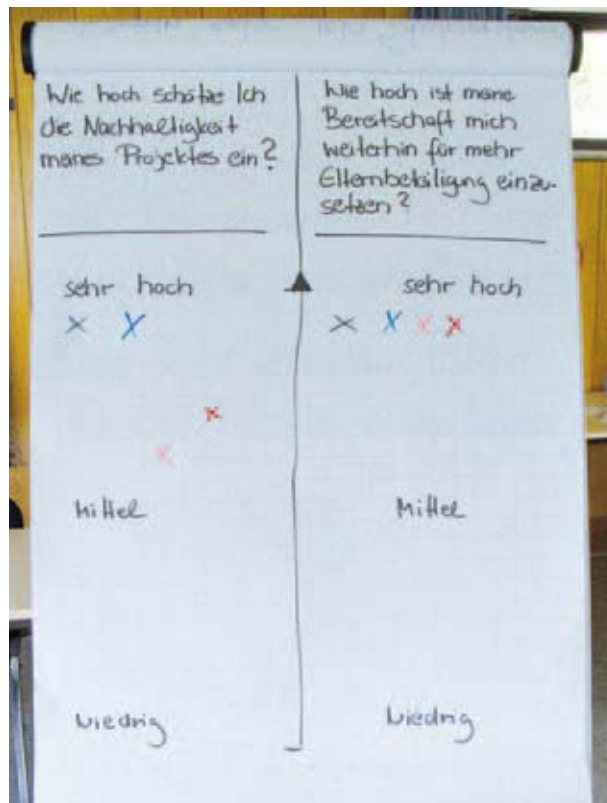 Wie hoch schätze Ich
die Nachhaltigkeit
meines Projektes ein?
sehr hoch
Mittel
Niedrig
Wie hoch ist meine
Bereitschaft mich
weiterhin für mehr
Elternbeteiligung einzu-
setzen?
sehr hoch
Mittel
Niedrig